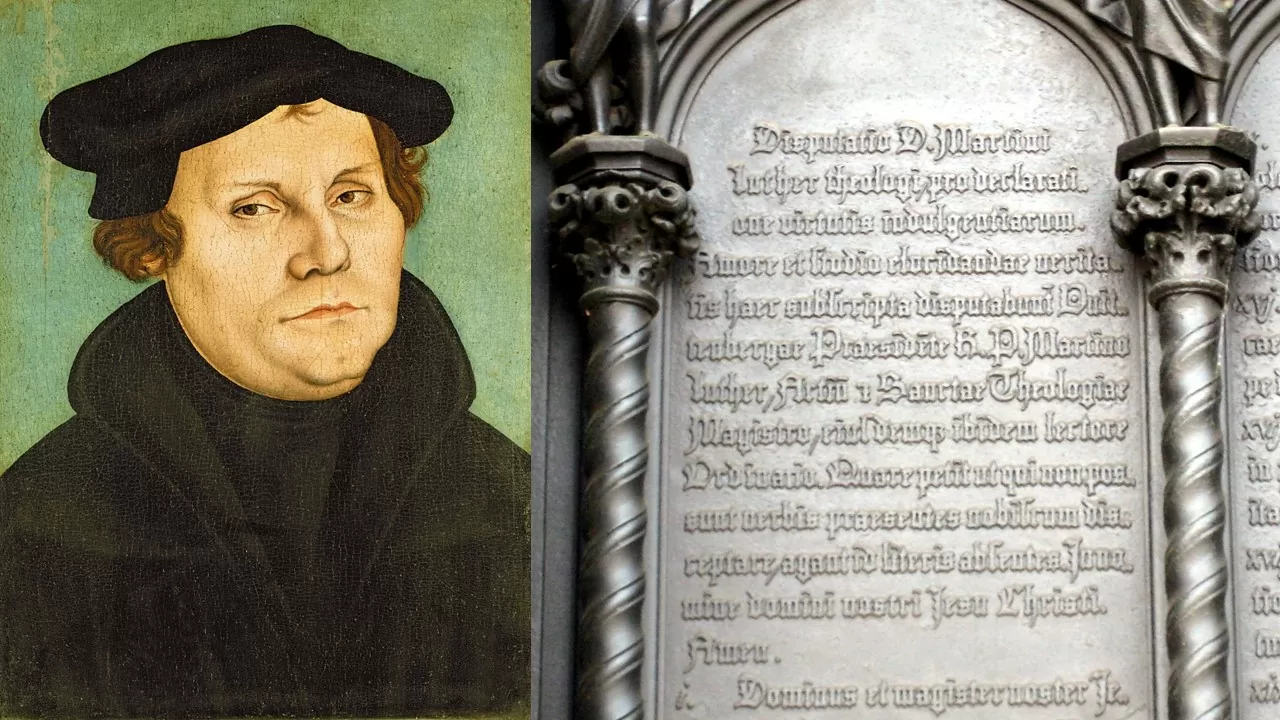 Disputatio D. Martini
Luther theologi, pro declarati-
one virtutis indulgentiarum.
Amore et studio elucidandae verita-
tis haec subscripta disputabunt Witt-
enbergae, Praesidēte R. P. Martino
Luther, Artiū & Sanctae Theologiae
Magistro, eiusdemq ibidem lectore
Ordinario. Quare petit ut qui non pos-
sunt verbis praesentes nobiscum dis-
ceptare, agant id literis absentes. In no-
mine domini nostri Jesu Christi.
Amen.
i. Dominus et magister noster Je-